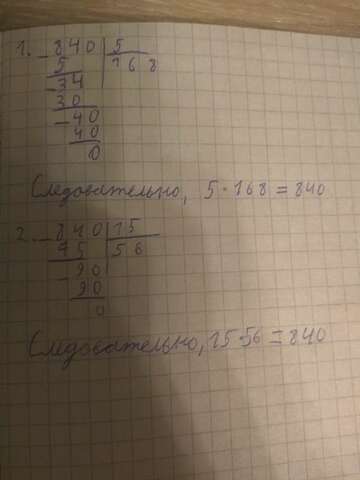 1. - 840 | 5
5 | 168
- 34
30
- 40
40
0
Следовательно, 5 · 168 = 840
2. - 840 | 15
75 | 56
- 90
90
0
Следовательно, 15·56 = 840